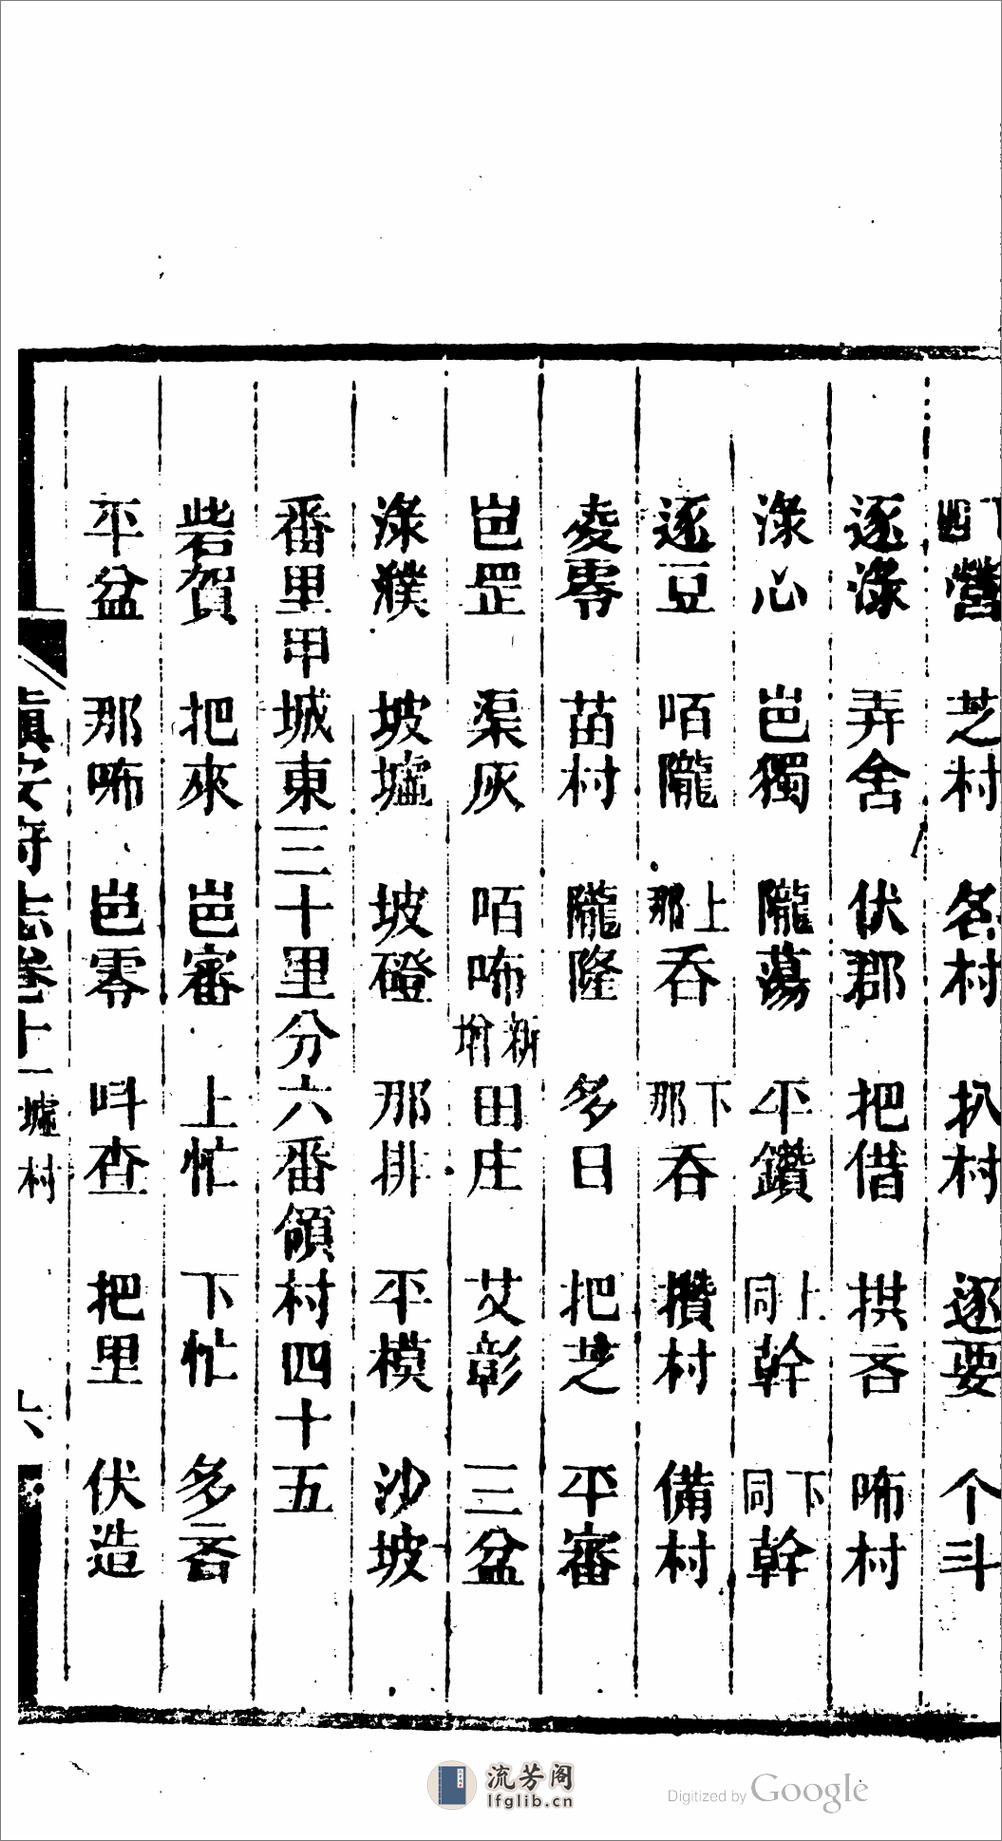 四營　芝村　名村　扒村　逐要　个斗
逐淥　弄舍　伏郡　把借　拱吝　咘村
淥心　岜獨　隴蕩　平鑽　上同幹　下同幹
逐豆　咟隴　上那吞　下那吞　攢村　備村
凌零　苗村　隴隆　多日　把芝　平審
岜罡　渠灰　咟咘　新增田庄　艾彰　三盆
淥濮　坡墟　坡磴　那排　平模　沙坡
番里甲城東三十里分六番領村四十五
砦賀　把來　岜審　上忙　下忙　多吝
平盆　那咘　岜零　呌查　把里　伏造
鎮安府志卷十一　墟村　六
流芳阁
lfglib.cn
Digitized by Google